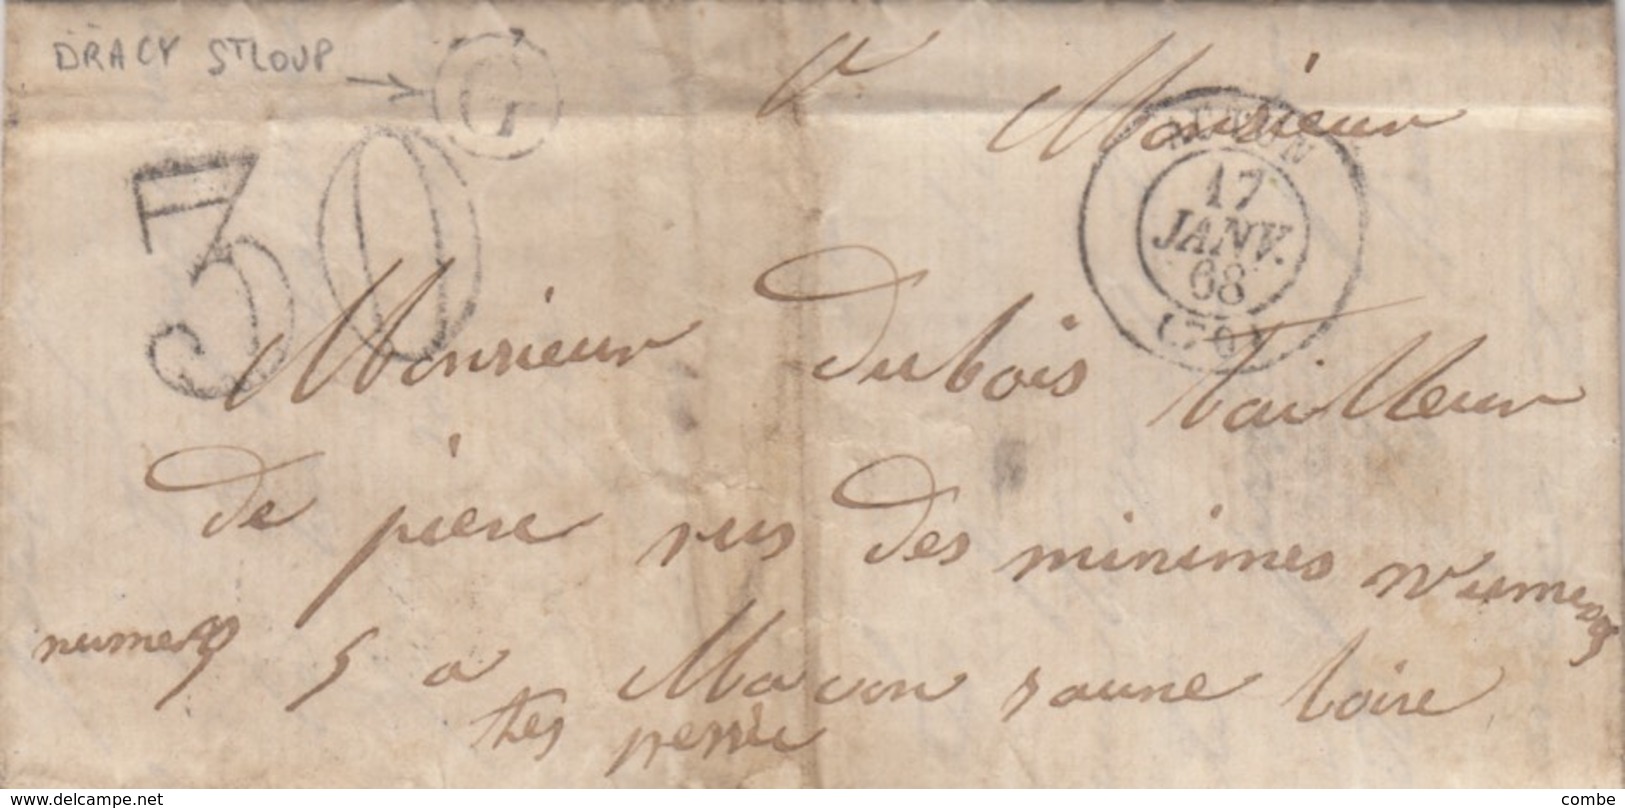 DRACY St LOUP
G
A Monsieur
30
AUTUN
17
JANV.
68
(70)
Monsieur Dubois tailleur
De piere rus des minimes numero
numero 5 a Macon saune loire
tres pressée
www.delcampe.net
combe